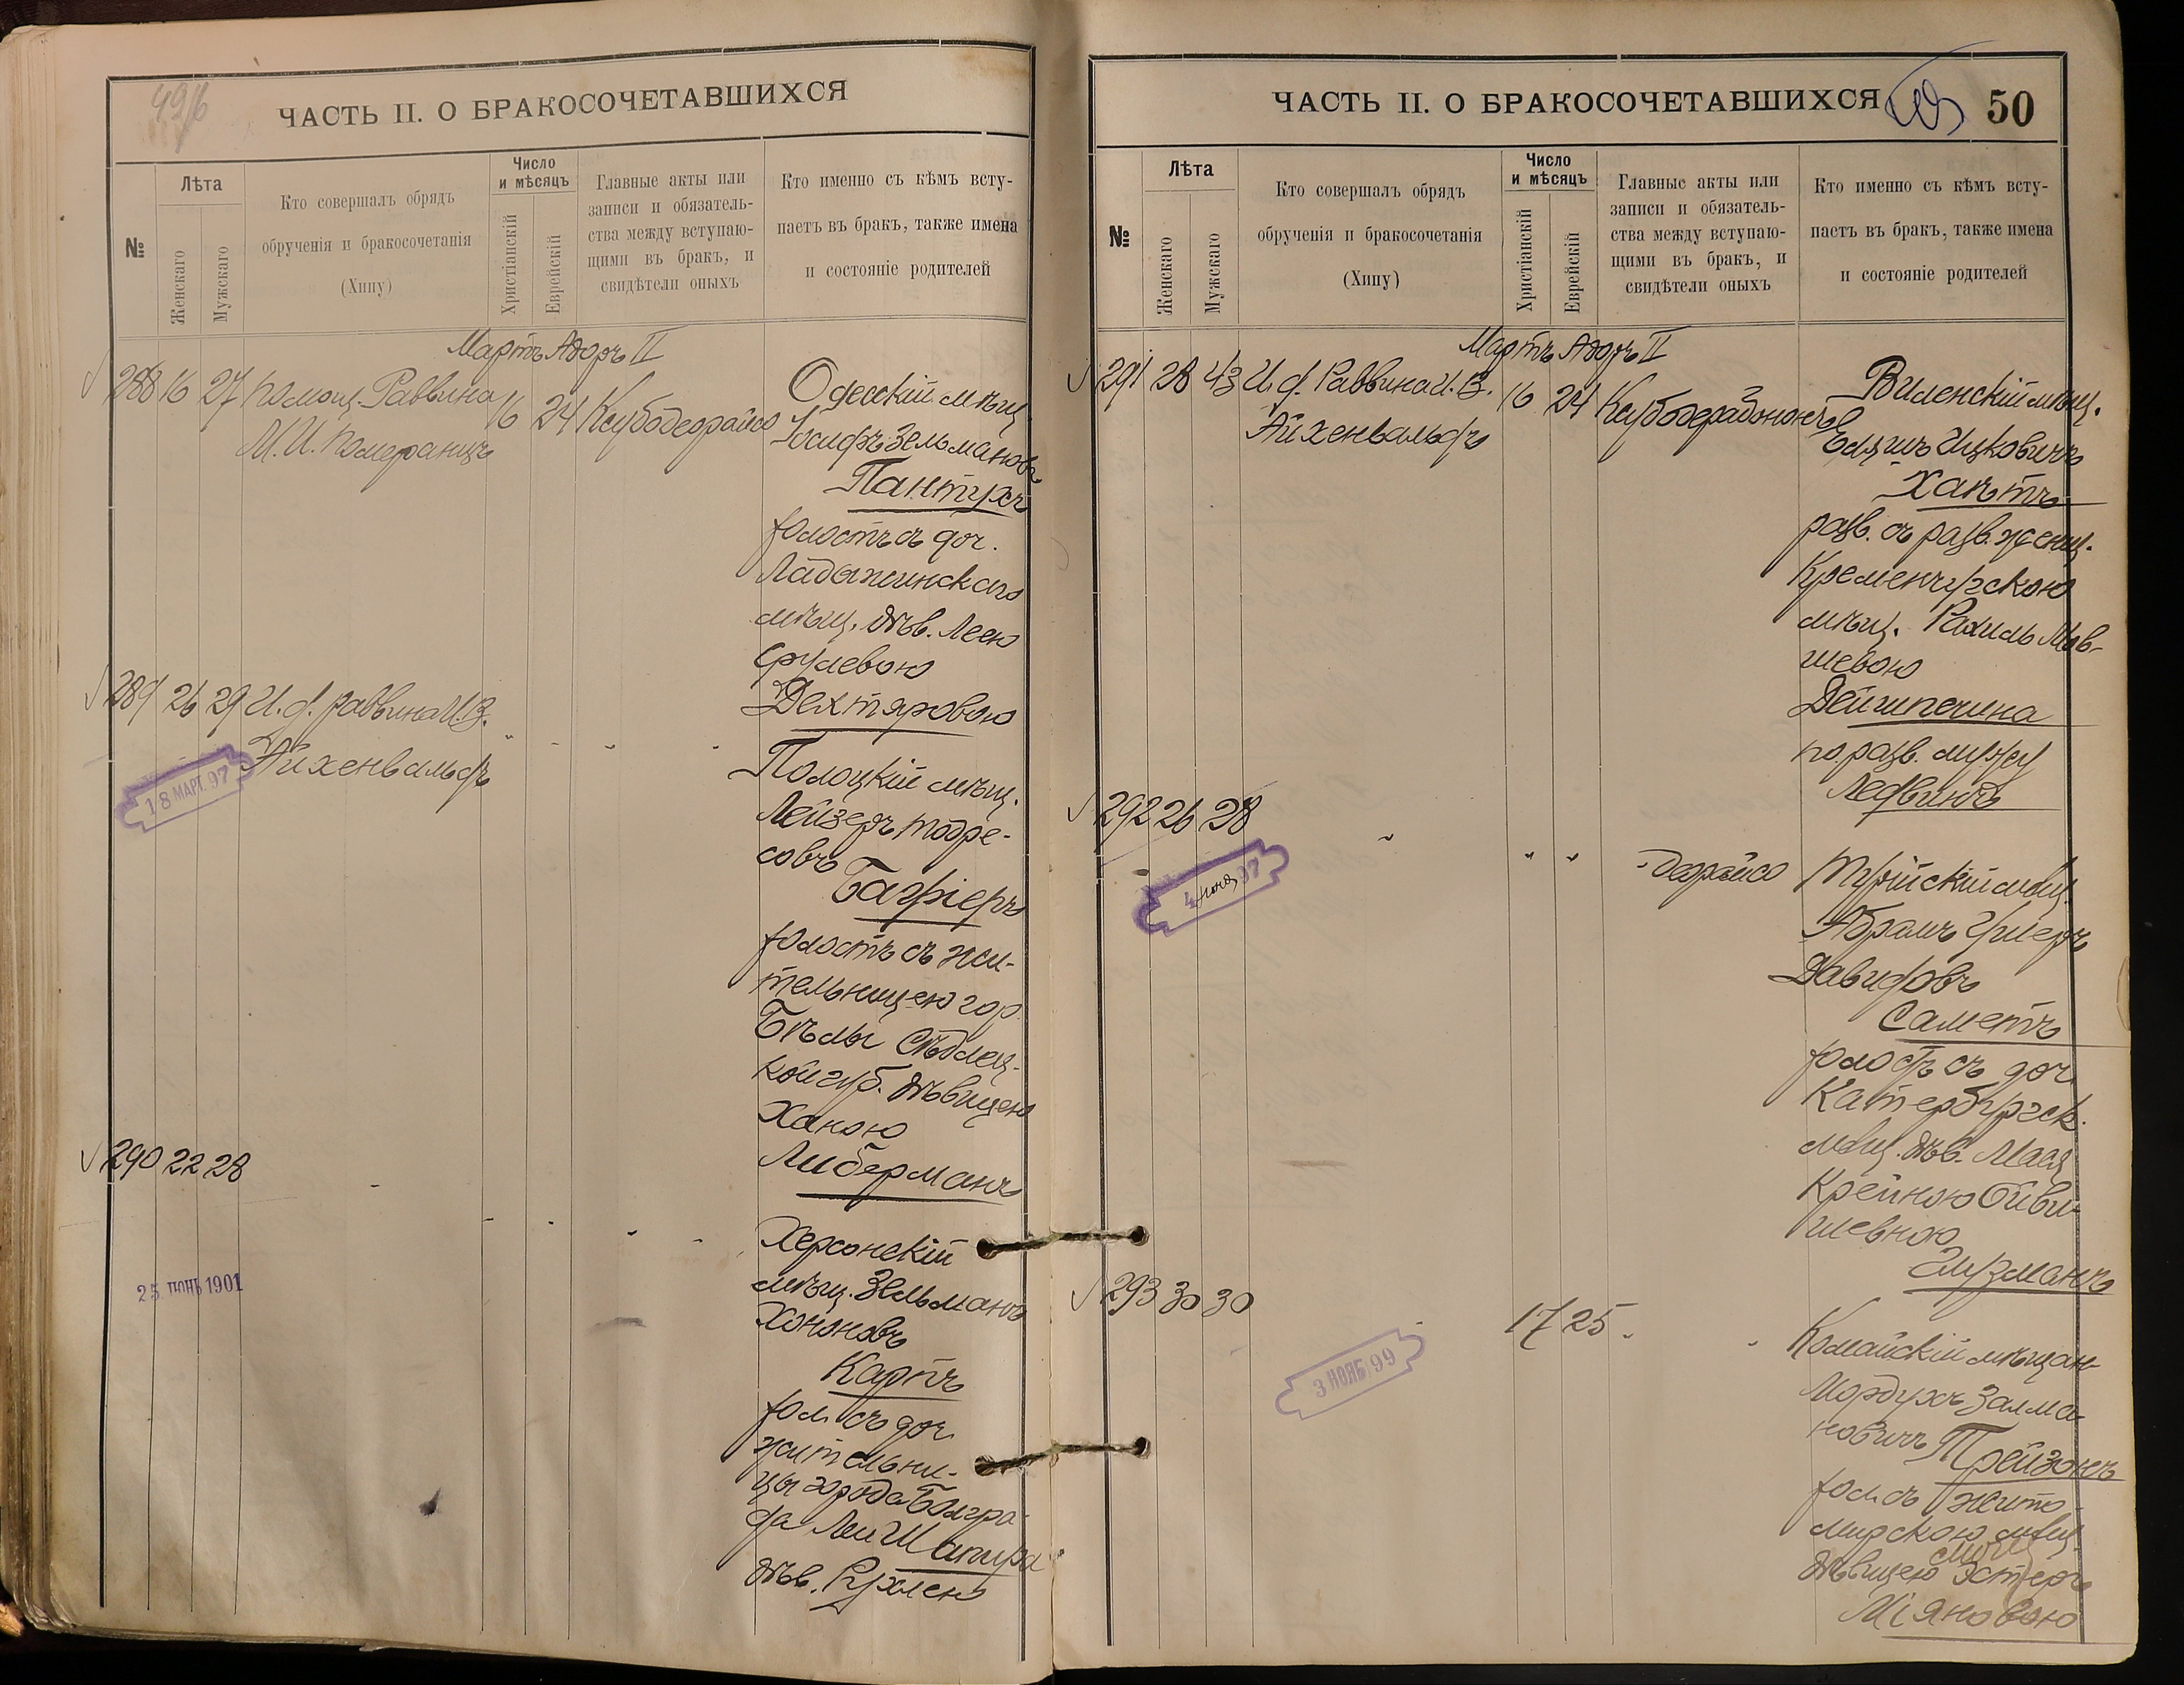 49/6
ЧАСТЬ II. О БРАКОСОЧЕТАВШИХСЯ
№
Лѣта
Женскаго
Мужскаго
Кто совершалъ обрядъ
обрученія и бракосочетанія
(Хипу)
Число
и мѣсяцъ
Христіанскій
Еврейскій
Главные акты или
записи и обязатель-
ства между вступаю-
щими въ бракъ, и
свидѣтели оныхъ
Кто именно съ кѣмъ всту-
паетъ въ бракъ, также имена
и состояніе родителей
Мартъ Адоръ II
288 16 27 Помощ. Раввина 16 24 Ксубодеорайсо
М. И. Померанцъ
Одесскій мѣщ.
Іосифъ Зельмановъ
Пантухъ
холостъ съ доч.
Ладыжинскаго
мѣщ. дѣв. Леею
Срулевою
Дехтяровою
289 26 29 И. д. раввина И. В.
Айхенвальдъ
18 МАРТ. 97
Полоцкій мѣщ.
Лейзеръ Тодре-
совъ
холостъ съ жи-
тельницею гор.
Бѣлы Сѣдлец-
кой губ. дѣвицею
Ханою
Либерманъ
290 22 28
25 ІЮНЬ 1901
Херсонскій
мѣщ. Зельманъ
Хононовъ
Картъ
хол. съ доч.
жительни-
цы города Болгра-
да Леи Шапира
дѣв. Рухлею
ЧАСТЬ II. О БРАКОСОЧЕТАВШИХСЯ
50
№
Лѣта
Женскаго
Мужскаго
Кто совершалъ обрядъ
обрученія и бракосочетанія
(Хипу)
Число
и мѣсяцъ
Христіанскій
Еврейскій
Главные акты или
записи и обязатель-
ства между вступаю-
щими въ бракъ, и
свидѣтели оныхъ
Кто именно съ кѣмъ всту-
паетъ въ бракъ, также имена
и состояніе родителей
Мартъ Адоръ II
291 28 43 И. д. Раввина И. В. 16 24
Айхенвальдъ
Виленскій мѣщ.
Ицковичъ
разв. съ разв. женщ.
Кременчугскою
мѣщ. Рахиль Мов-
шевою
по разв. мужу
292 26 28 " " " - деорайсо
97
мѣщ.
Абрамъ Гилеръ
Давидовъ
Саметъ
холостъ съ доч.
Катербургск.
мѣщ. дѣв. Мася
Крейною
шевною
293 30 30 17 25
3 НОЯБ. 99
Комайскій мѣщан.
Мордухъ Залма-
новичъ Трейзонъ
хол. съ Жито-
мирскою мѣщ.
дѣвицею Эстеръ
Міяновою